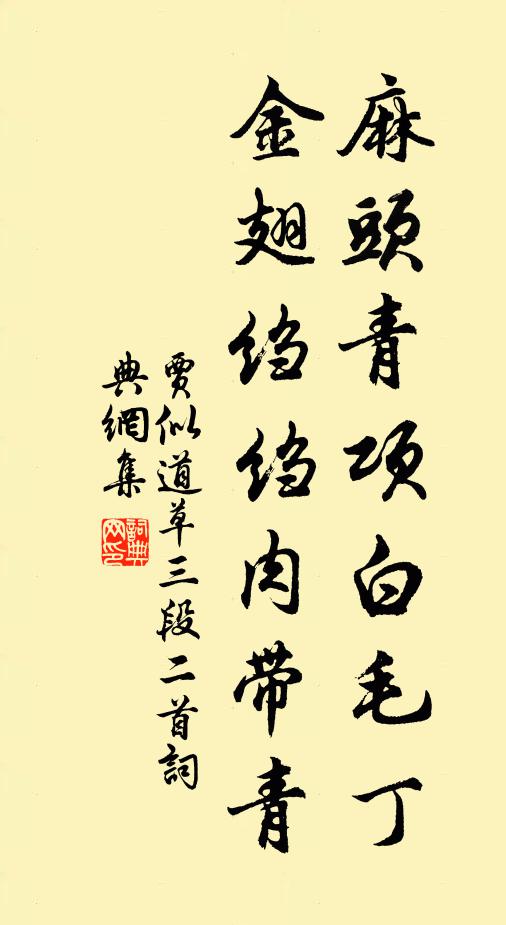 麻頭青項白毛丁
金翅绉绉肉带青
賈似道草三段二首詞
典網集
詞典网印